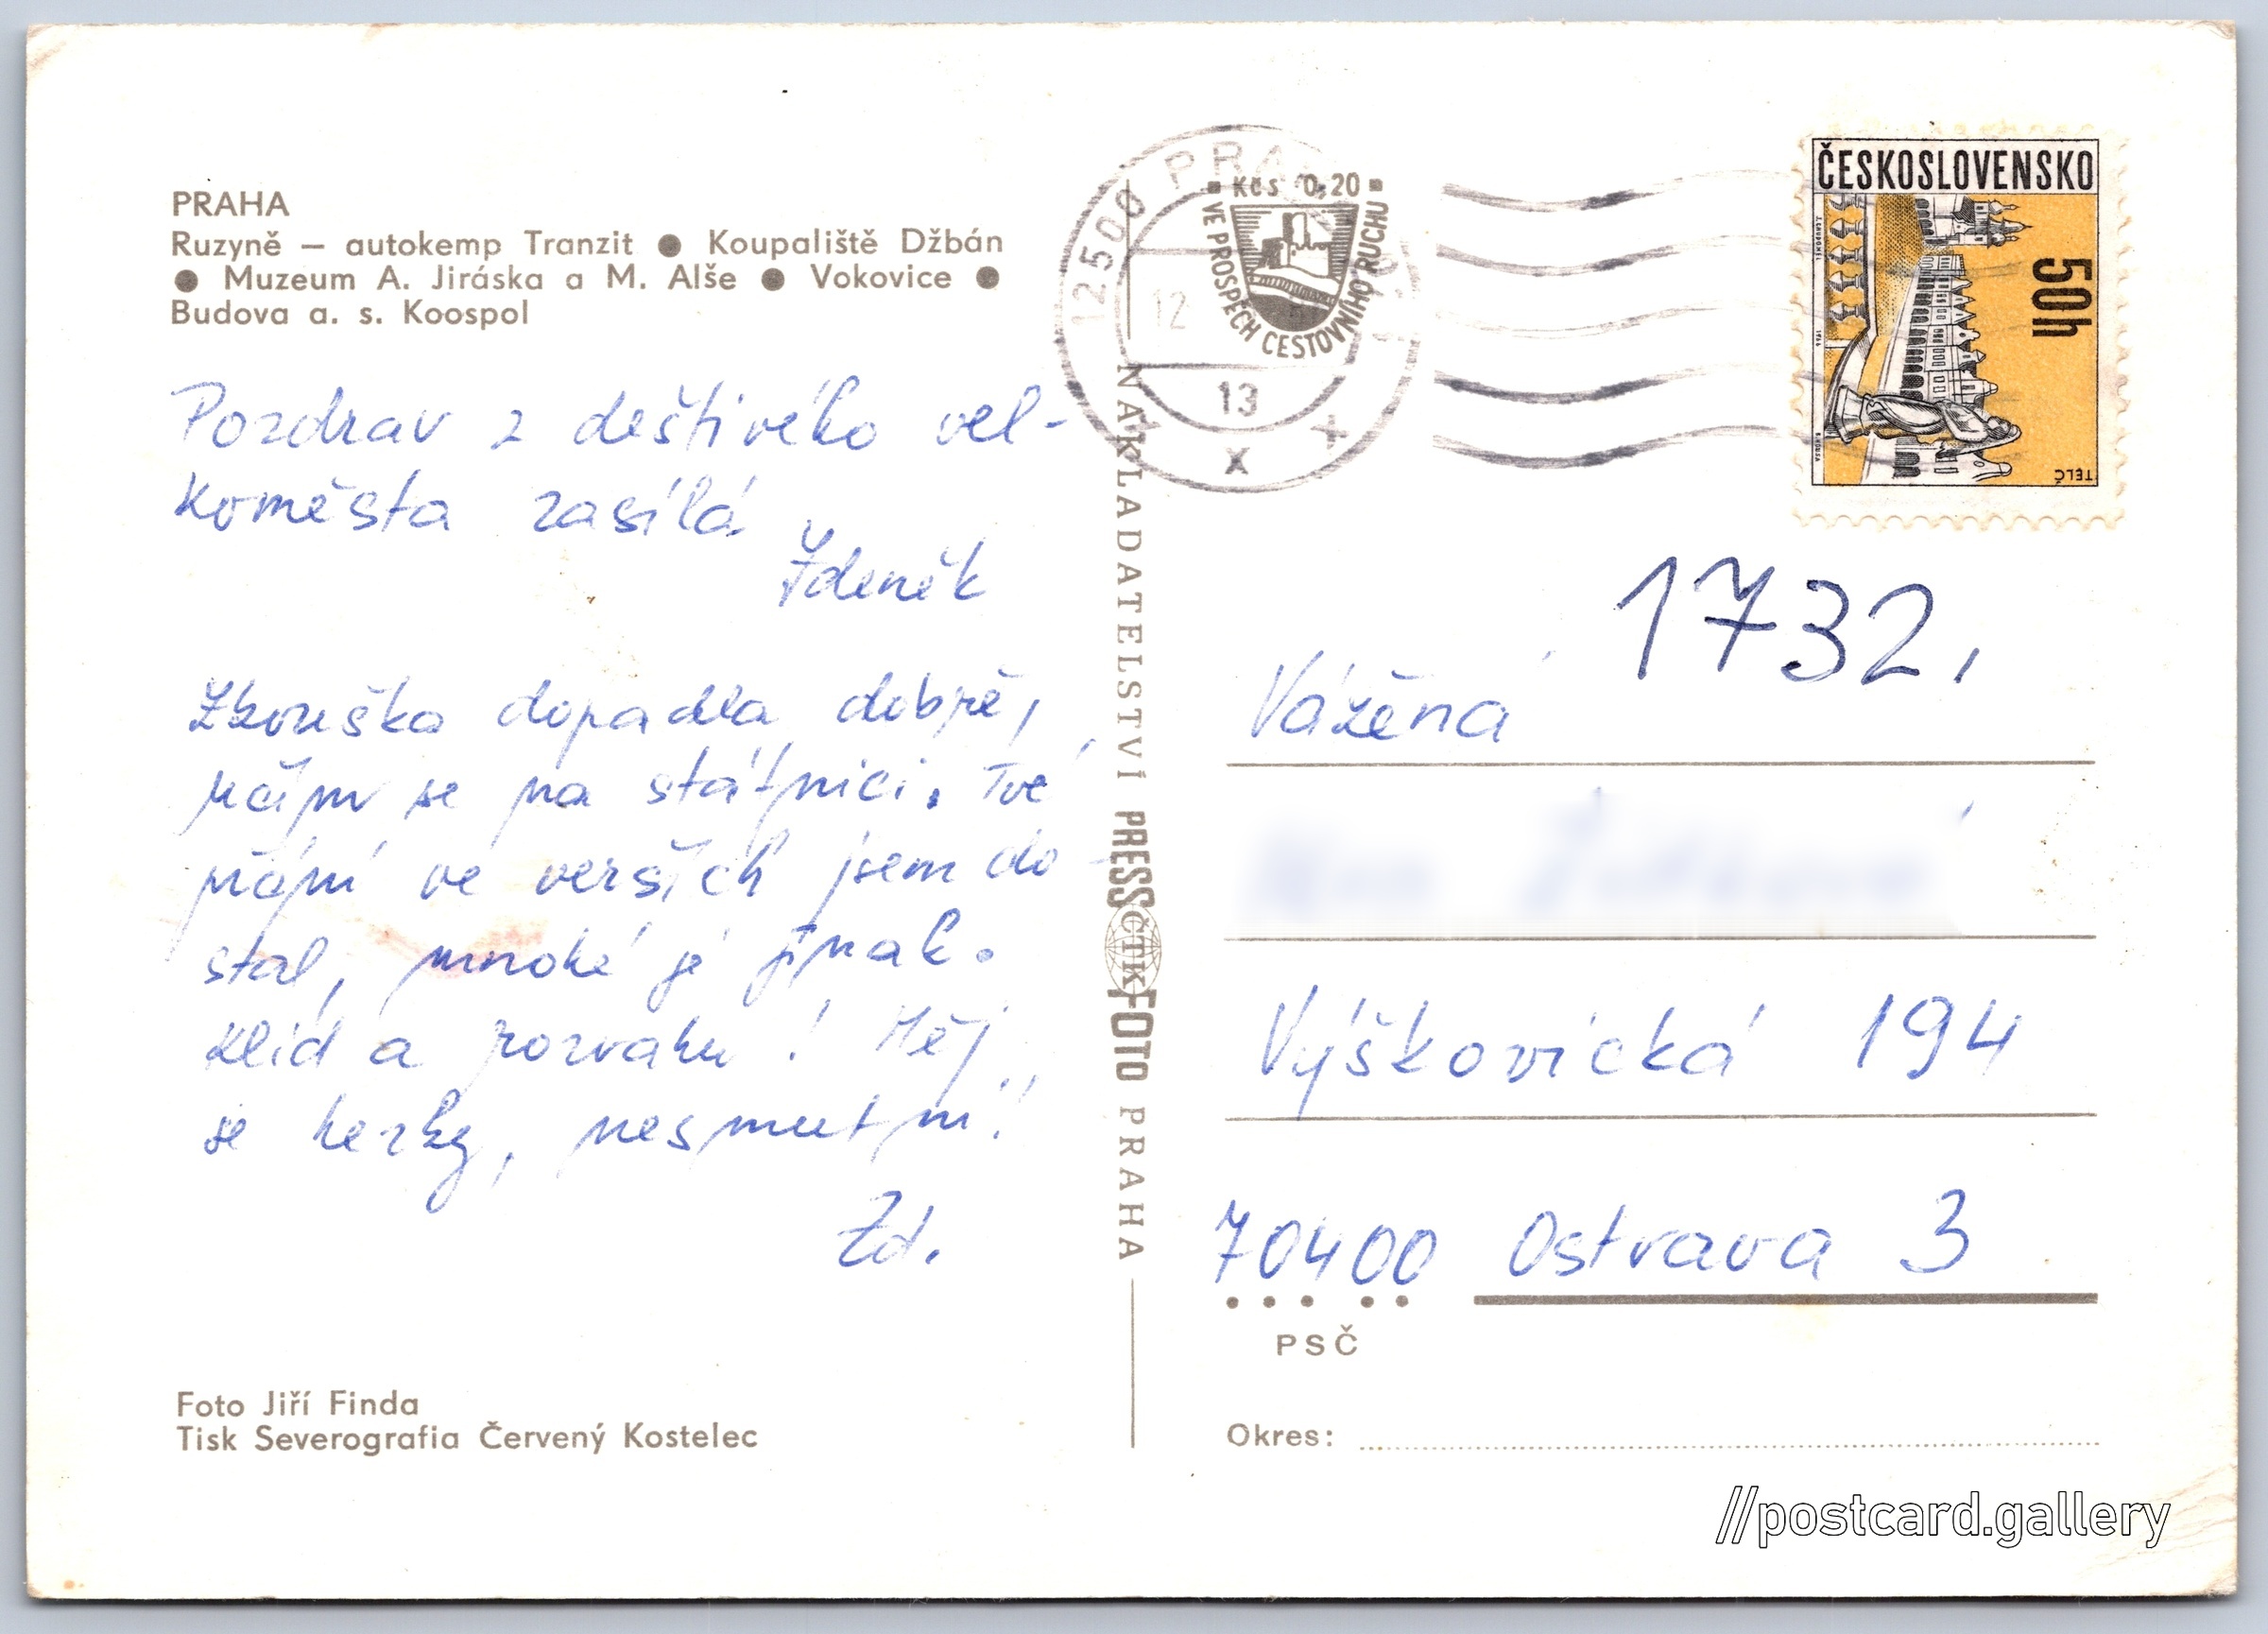 PRAHA
Ruzyně – autokemp Tranzit ● Koupaliště Džbán
● Muzeum A. Jiráska a M. Alše ● Vokovice ●
Budova a. s. Koospol
Pozdrav z deštivého vel-
koměsta zasílá
Zdeněk
Zkouška dopadla dobře,
učím se na státnici. Tvé
přání ve verších jsem do
stal, mnohé je jinak.
Klid a rozvahu! Měj
se hezky, nesmutni!
Zd.
Foto Jiří Finda
Tisk Severografia Červený Kostelec
NAKLADATELSTVÍ PRESSFOTO PRAHA
ČTK
12500 PRA
12
13
X
+
Kčs 0,20
VE PROSPĚCH CESTOVNÍHO RUCHU
ČESKOSLOVENSKO
50h
TELČ
1732,
Vážená
Výškovická 194
70400 Ostrava 3
PSČ
Okres:
//postcard.gallery